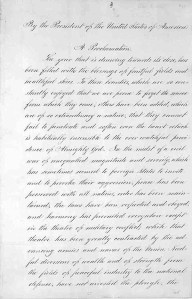 By the President of the United States of America
A Proclamation.
The year that is drawing towards its close, has
been filled with the blessings of fruitful fields and
healthful skies. To these bounties, which are so con-
stantly enjoyed that we are prone to forget the source
from which they come, others have been added, which are
of so extraordinary a nature, that they cannot
fail to penetrate and soften even the heart which
is habitually insensible to the ever watchful provi-
dence of Almighty God. In the midst of a civil
war of unequalled magnitude and severity, which
has sometimes seemed to foreign States to invite
and to provoke their aggression, peace has been
preserved with all nations, order has been main-
tained, the laws have been respected and obeyed
and harmony has prevailed everywhere except
in the theatre of military conflict, while that
theatre has been greatly contracted by the ad-
vancing armies and navies of the Union. Need-
ful diversions of wealth and of strength from
the fields of peaceful industry to the national
defence, have not arrested the plough, the